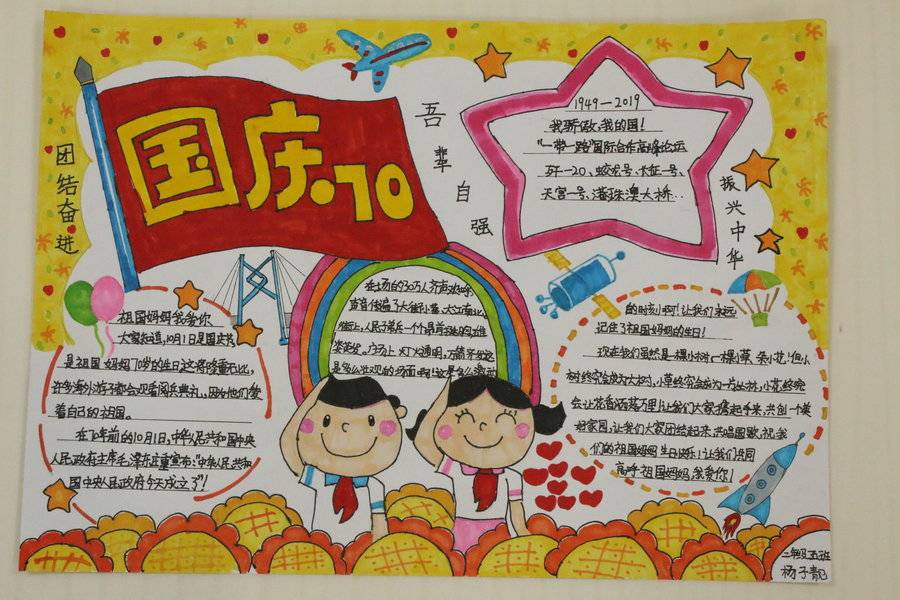 国庆.70
团结奋进
吾辈自强
振兴中华
1949—2019
我骄傲,我的国!
"一带一路"国际合作高峰论坛
歼—20、蛟龙号、长征一号、
天宫一号、港珠澳大桥…
祖国妈妈我爱你
大家知道,10月1日是国庆节
是祖国妈妈70岁的生日,这将隆重无比,
许多海外游子都会观看阅兵典礼,因为他们爱
着自己的祖国。
在70年前的10月1日,中华人民共和国中央
人民政府主席毛泽东庄重宣布:"中华人民共和
国中央人民政府今天成立了"!
在场的30万人齐声欢呼,
声音传遍了大街小巷、大江南北,
人民子弟兵一个个昂首挺胸的
广场上灯火通明,
多么壮观的场面啊!这是多么激动
的时刻啊!让我们永远
记住了祖国妈妈的生日!
现在我们虽然是一棵小树、一棵小草、朵小花!但小
树终究会成为大树,小草终究会成为一片丛林,小花终究
会让花香洒落万里!让我们大家携起手来,共创一个美
好家园,让我们大家团结起来,共唱国歌,祝我
们的祖国妈妈生日快乐!让我们共同
高呼祖国妈妈,我爱你!
二年级五班
杨子